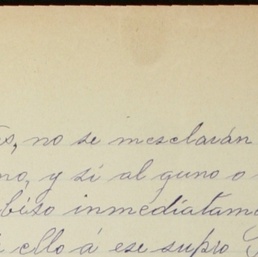 no se mesclarán
no, y si al guno o
biso inmediatame
ello á ese supro